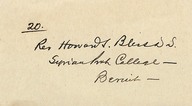 20.
Rev Howard S. Bliss D.
Syrian Prot College —
Beirut —